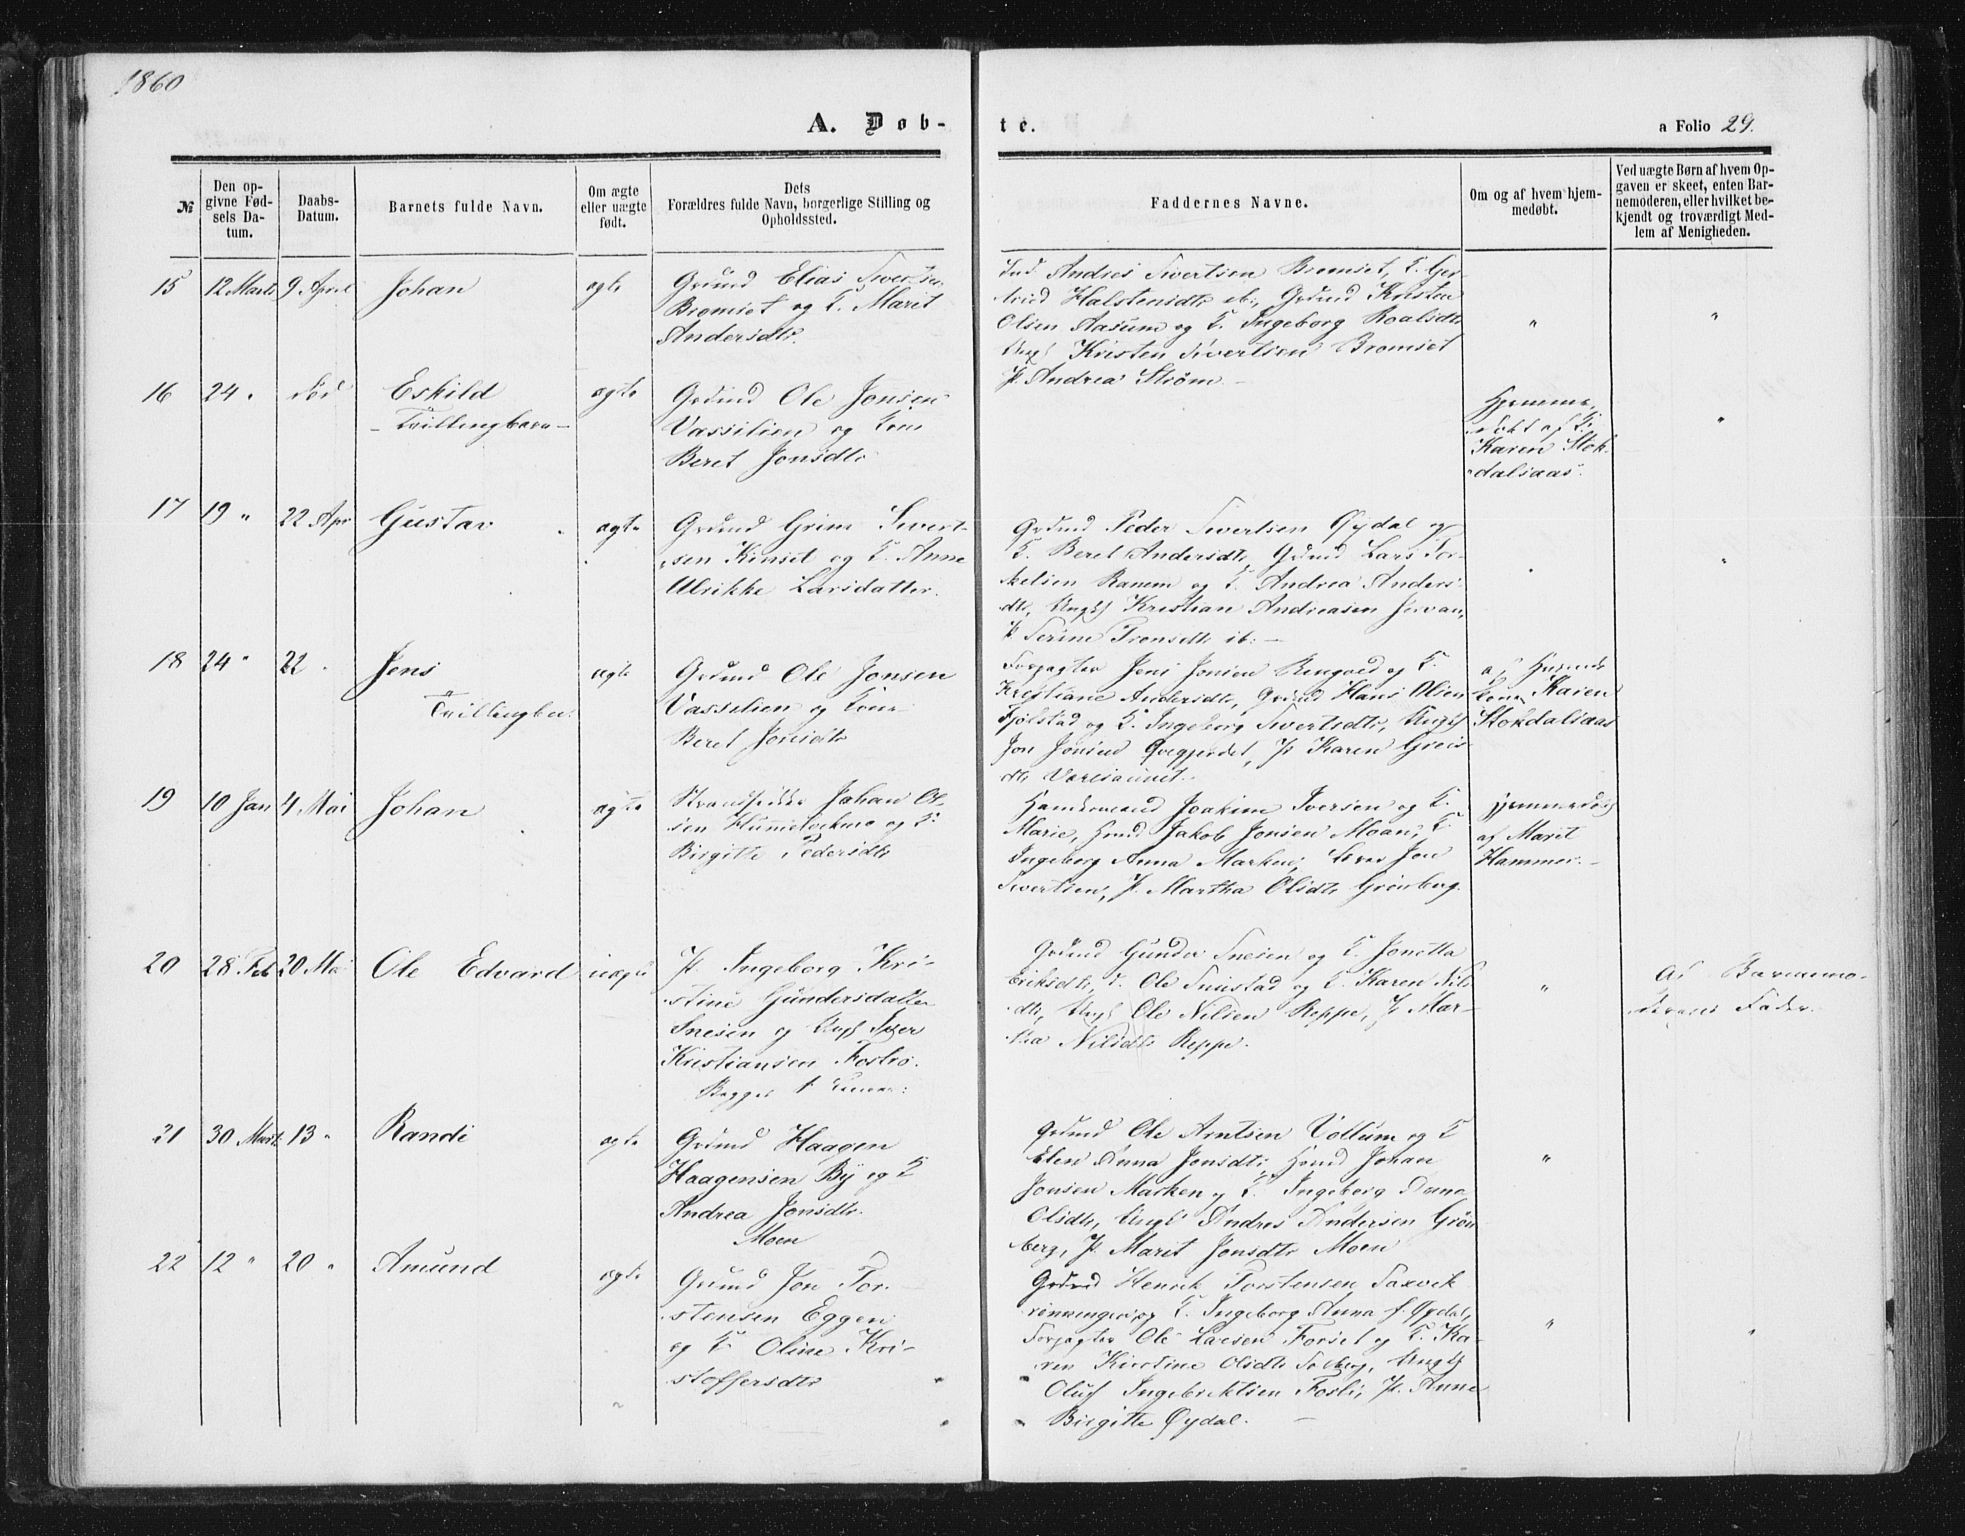 1860
A. Døb-
te.
a Folio 29.
№
Den op-
givne Fød-
sels Da-
tum.
Daabs-
Datum.
Barnets fulde Navn.
Om ægte
eller uægte
født.
Dets
Forældres fulde Navn, borgerlige Stilling og
Opholdssted.
Faddernes Navne.
Om og af hvem hjem-
medøbt.
Ved uægte Børn af hvem Op-
gaven er skeet, enten Bar-
nemoderen, eller hvilket be-
kjendt og troværdigt Med-
lem af Menigheden.
15
12 Marts
9 April
Johan
ægte
Grdmd Elias Sivertsen
Bromset og K. Marit
Andersdtr.
Andres Sivertsen Bromset, K. Ger-
trud Halstensdtr ib., Grdmd Kristen
Olsen Aasum og K. Ingeborg Roalsdtr
Ungk Kristen Sivertsen Bromset
P. Andrea Strøm. -
"
"
16
24 "
Død
Eskild
- Tvillingbarn -
ægte
Grdmd Ole Jonsen
Vassilien og Kone
Beret Jonsdtr
Hjemme-
døbt af K.
Karen Stok-
dalsaas.
"
17
19 "
22 Apr
Gustav
ægte
Grdmd Grim Sivert-
sen Kinset og K. Anne
Ulrikke Larsdatter.
Grdmd Peder Sivertsen Øydal og
K. Beret Andersdtr, Grdmd Lars Tor-
kelsen Ranem og K. Andrea Anders-
dtr, Ungk Kristian Andreasen Jervan,
P. Serine Tronsdtr ib. -
"
"
18
24 "
22 "
Jens
Tvillingbn:
ægte
Grdmd Ole Jonsen
Vassilien og Kone
Beret Jonsdtr
Forpagter Jens Jonsen Ringvold og K.
Kristiane Andersdtr, Grdmd Hans Olsen
Fjølstad og K. Ingeborg Sivertsdtr, Ungk
Jon Jonsen Qvegjerdet, P. Karen Greis-
dtr
af Husmds
Kone Karen
Stokdalsaas
19
10 Jan
4 Mai
Johan
ægte
Johan Ol-
sen og K.
Birgitte Pedersdtr
Joakim Iversen og K.
Marie, Hmd Jakob Jonsen Moan, K.
Ingeborg Anna Marken, Jon
Sivertsen, P. Martha Olsdtr Grønberg.
Hjemmedøbt
af Marit
Hammer. -
20
28 Feb
20 Mai
Ole Edvard
uægte
P. Ingeborg Kri-
stine Gundersdatter
Snesen og Ungk Iver
Kristiansen Fostro.
Begges 1
Grdmd Gunder Snesen og K. Jonetta
Eriksdtr, Ole og K. Karen Nils-
dtr, Ungk Ole Nilsen Reppe, P. Mar-
tha Nilsdtr Reppe.
"
Af Barnemo-
derens Fader.
21
30 Marts
13 "
Randi
ægte
Grdmd Haagen
Haagensen By og K
Andrea Jonsdtr.
Moen
Grdmd Ole Arntsen Vollum og K
Elen Anna Jonsdtr, Hmd Johan
Jonsen Marken og K. Ingeborg Anna
Olsdtr, Ungk Andres Andersen Grøn-
berg, P. Marit Jonsdtr Moen
"
22
12 "
20 "
Amund
ægte
Grdmd Jon Tor-
stensen Eggen
og K Oline Kri-
stoffersdtr
Grdmd Henrik Torstensen Saxvik
K. Ingeborg Anna f. Øydal,
Forpagter Ole Larsen Forset og K. Ka-
ren Kirstine Olsdtr Solberg, Ungk
Oluf Ingebrektsen Fosli, P. Anne
Birgitte Øydal. -
"
"